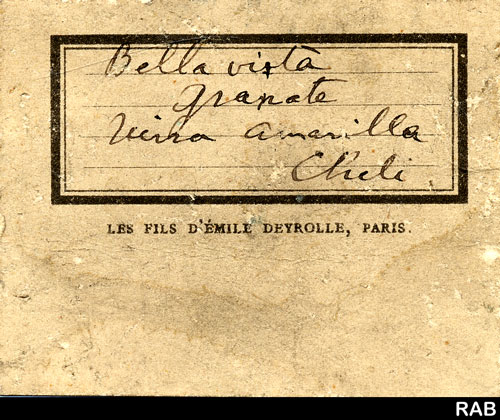 Bella vista
Granate
Tierra amarilla
Chili
LES FILS D'ÉMILE DEYROLLE, PARIS.
RAB